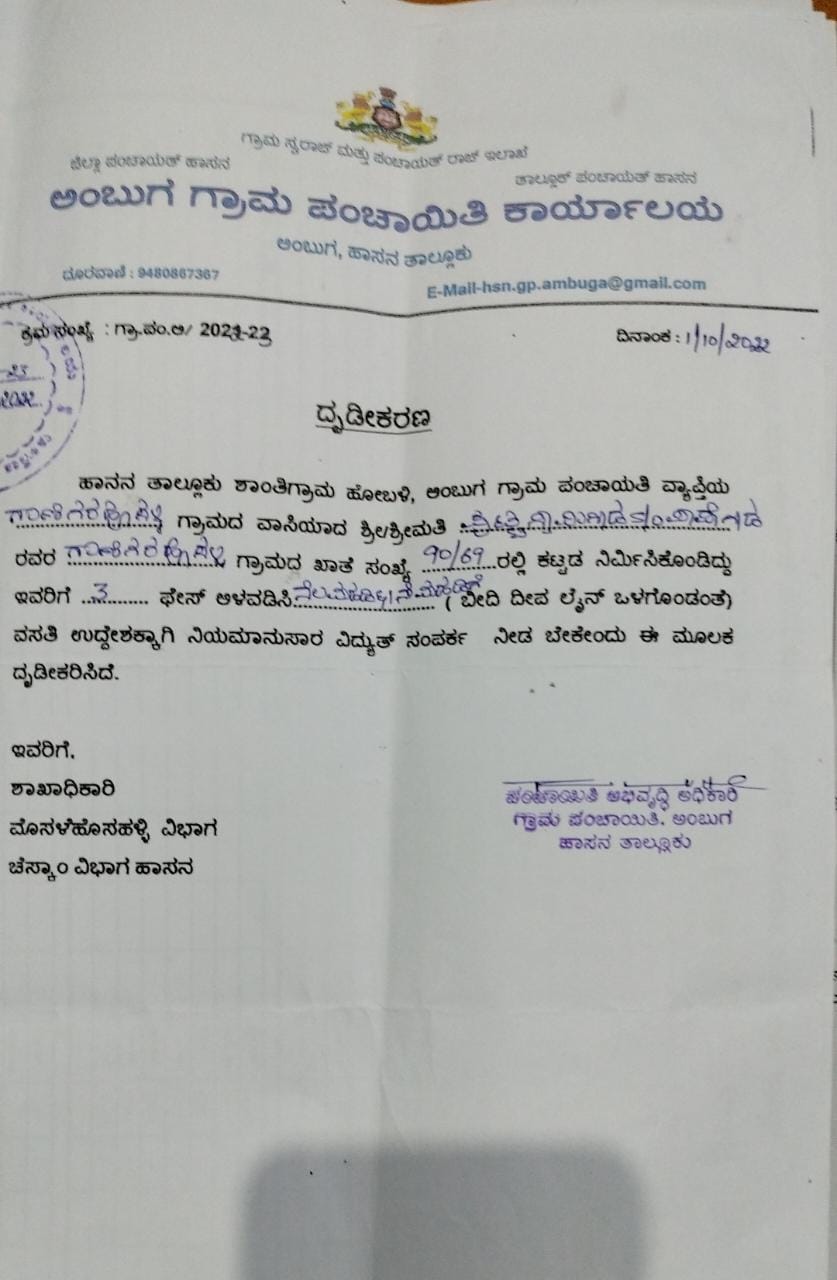 ಗ್ರಾಮ ಸ್ವರಾಜ್ ಮತ್ತು ಪಂಚಾಯತ್ ರಾಜ್ ಇಲಾಖೆ
ಜಿಲ್ಲಾ ಪಂಚಾಯತ್ ಹಾಸನ
ತಾಲ್ಲೂಕ್ ಪಂಚಾಯತ್ ಹಾಸನ
ಅಂಬುಗ ಗ್ರಾಮ ಪಂಚಾಯಿತಿ ಕಾರ್ಯಾಲಯ
ಅಂಬುಗ, ಹಾಸನ ತಾಲ್ಲೂಕು
ದೂರವಾಣಿ : 9480867367
E-Mail-hsn.gp.ambuga@gmail.com
ಕ್ರಮ ಸಂಖ್ಯೆ : ಗ್ರಾ.ಪಂ.ಅ/ 2021-22
ದಿನಾಂಕ : 1/10/2022
ದೃಡೀಕರಣ
ಹಾಸನ ತಾಲ್ಲೂಕು ಶಾಂತಿಗ್ರಾಮ ಹೋಬಳಿ, ಅಂಬುಗ ಗ್ರಾಮ ಪಂಚಾಯತಿ ವ್ಯಾಪ್ತಿಯ
ಗ್ರಾಮದ ವಾಸಿಯಾದ ಶ್ರೀ/ಶ್ರೀಮತಿ
ರವರ ಗ್ರಾಮದ ಖಾತೆ ಸಂಖ್ಯೆ 90/69 ರಲ್ಲಿ ಕಟ್ಟಡ ನಿರ್ಮಿಸಿಕೊಂಡಿದ್ದು
ಇವರಿಗೆ 3 ಫೇಸ್ ಅಳವಡಿಸಿ ( ಬೀದಿ ದೀಪ ಲೈನ್ ಒಳಗೊಂಡಂತೆ)
ವಸತಿ ಉದ್ದೇಶಕ್ಕಾಗಿ ನಿಯಮಾನುಸಾರ ವಿದ್ಯುತ್ ಸಂಪರ್ಕ ನೀಡ ಬೇಕೇಂದು ಈ ಮೂಲಕ
ದೃಡೀಕರಿಸಿದೆ.
ಇವರಿಗೆ,
ಶಾಖಾಧಿಕಾರಿ
ಮೊಸಳೆಹೊಸಹಳ್ಳಿ ವಿಭಾಗ
ಚೆಸ್ಕಾಂ ವಿಭಾಗ ಹಾಸನ
ಪಂಚಾಯಿತಿ ಅಭಿವೃದ್ಧಿ ಅಧಿಕಾರಿ
ಗ್ರಾಮ ಪಂಚಾಯಿತಿ. ಅಂಬುಗ
ಹಾಸನ ತಾಲ್ಲೂಕು